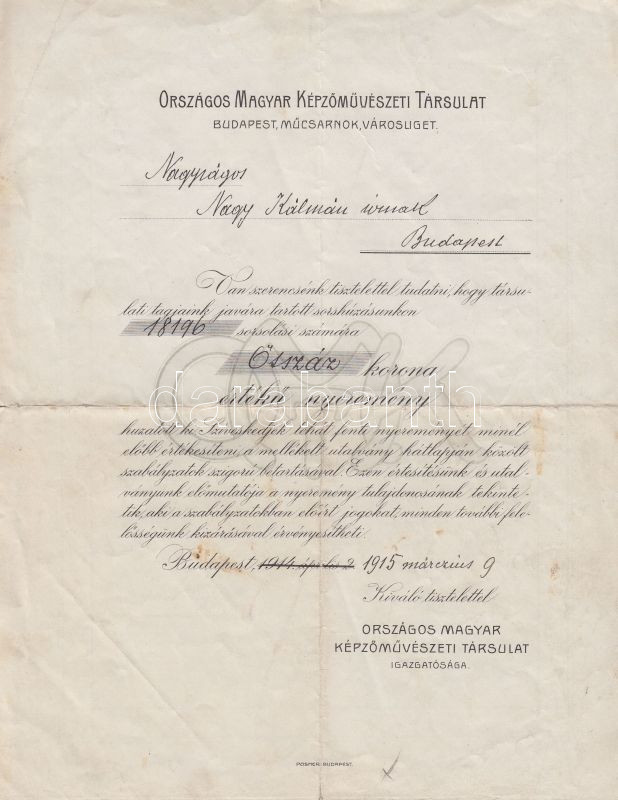 ORSZÁGOS MAGYAR KÉPZŐMŰVÉSZETI TÁRSULAT
BUDAPEST, MŰCSARNOK, VÁROSLIGET.
Nagyságos
Nagy Kálmán úrnak
Budapest
Van szerencsénk tisztelettel tudatni, hogy társu-
lati tagjaink javára tartott sorshúzásunkon
18196 sorsolási számára
Ötszáz korona
értékű nyeremény
huzatott ki. Sziveskedjék tehát fenti nyereményét minél
előbb értékesíteni, a mellékelt utalvány hátlapján közölt
szabályzatok szigorú betartásával. Ezen értesítésünk és utal-
ványunk előmutatója a nyeremény tulajdonosának tekinte-
tik, aki a szabályzatokban előírt jogokat, minden további fele-
lősségünk kizárásával érvényesítheti.
Budapest, 1914. április 2 1915 március 9
Kiváló tisztelettel
ORSZÁGOS MAGYAR
KÉPZŐMŰVÉSZETI TÁRSULAT
IGAZGATÓSÁGA.
POSNER, BUDAPEST.
darabanth